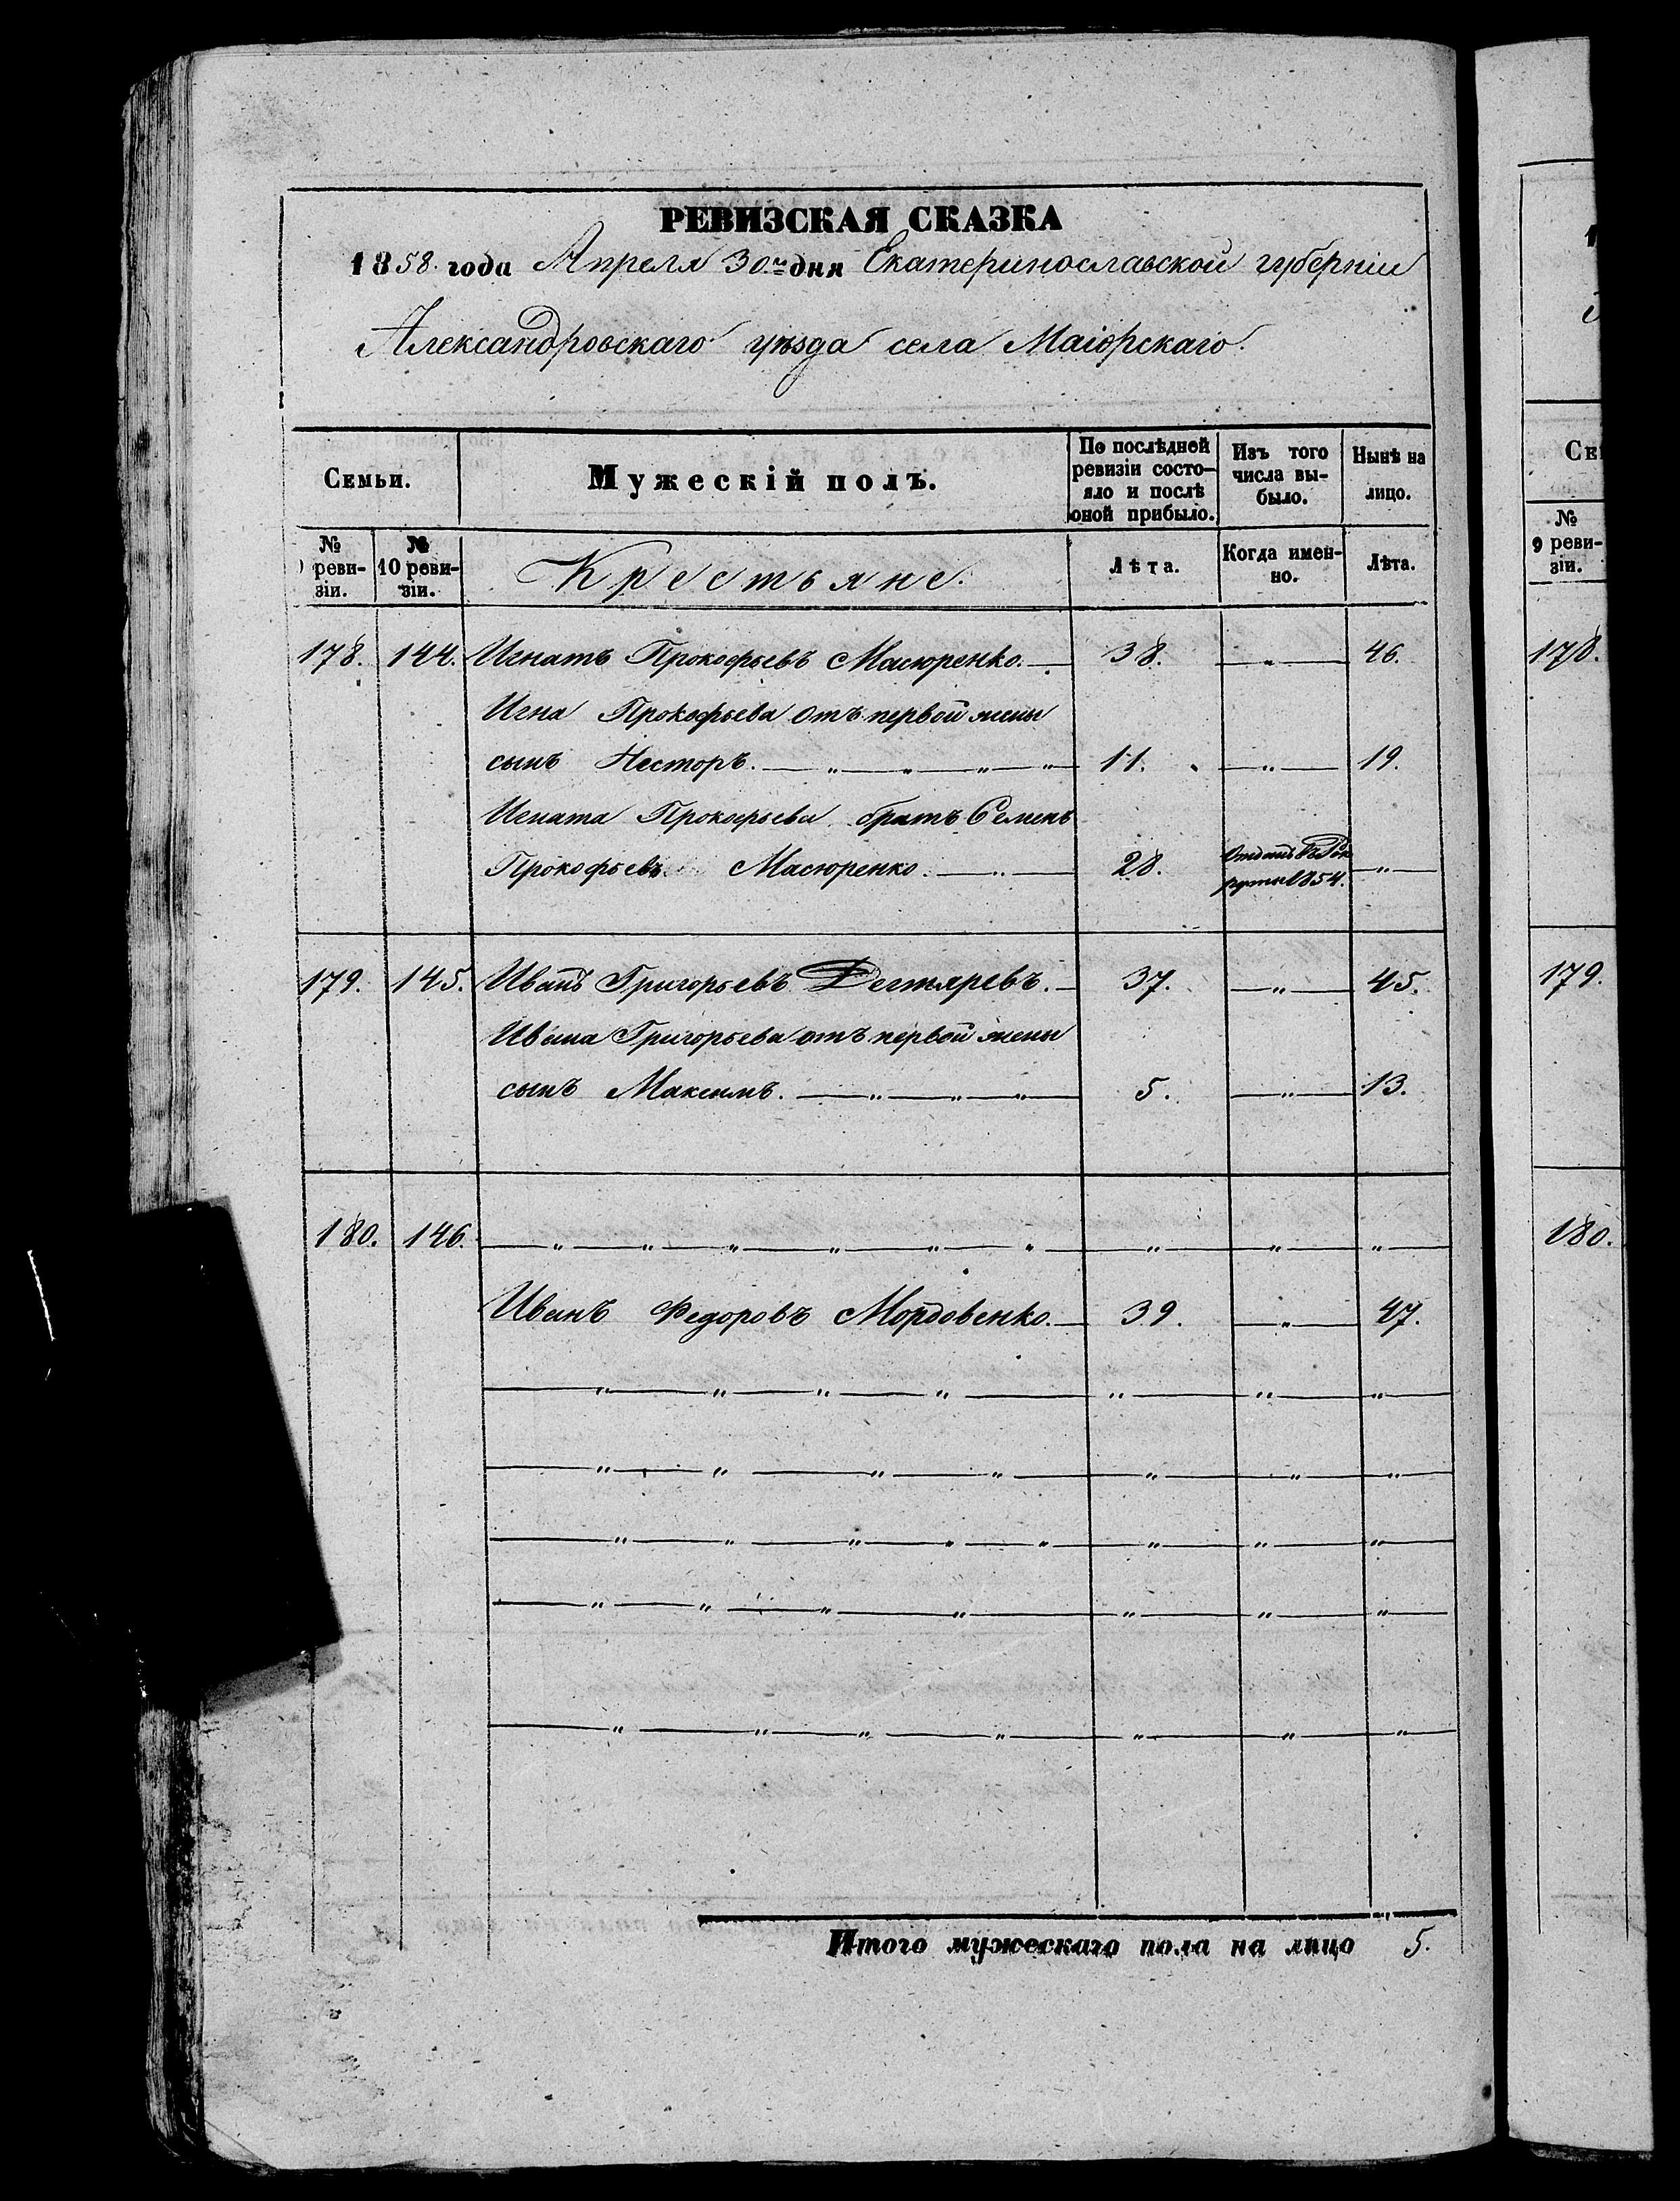 РЕВИЗСКАЯ СКАЗКА
1858. года Апреля 30го дня Екатеринославской губерніи
Александровскаго уѣзда села Маіорскаго.
Семьи.
Мужескій полъ.
По послѣдней ревизіи состояло и послѣ оной прибыло.
Изъ того числа выбыло.
Нынѣ на лицо.
№ реви-зіи.
№ 10 реви-зіи.
Крестьяне.
Лѣта.
Когда имен-но.
Лѣта.
178. 144. Игнатъ Прокофьевъ Масюренко. 38. " 46.
Игна Прокофьева отъ первой жены
сынъ Несторъ. " " " " 11. " 19.
Игната Прокофьева братъ Семенъ
Прокофьевъ Масюренко. " 28. Отданъ въ Рекруты 1854. "
179. 145. Иванъ Григорьевъ Дегтяревъ. 37. " 45.
Ивана Григорьева отъ первой жены
сынъ Максимъ. " " " 5. " 13.
180. 146. " " " " " " " " "
Иванъ Федоровъ Мордовенко. 39. " 47.
" " " " " " "
" " " " " " "
" " " " " " " "
" " " " " " "
" " " " " " "
Итого мужескаго пола на лицо 5.
№
9 реви-
зіи.
178.
179.
180.